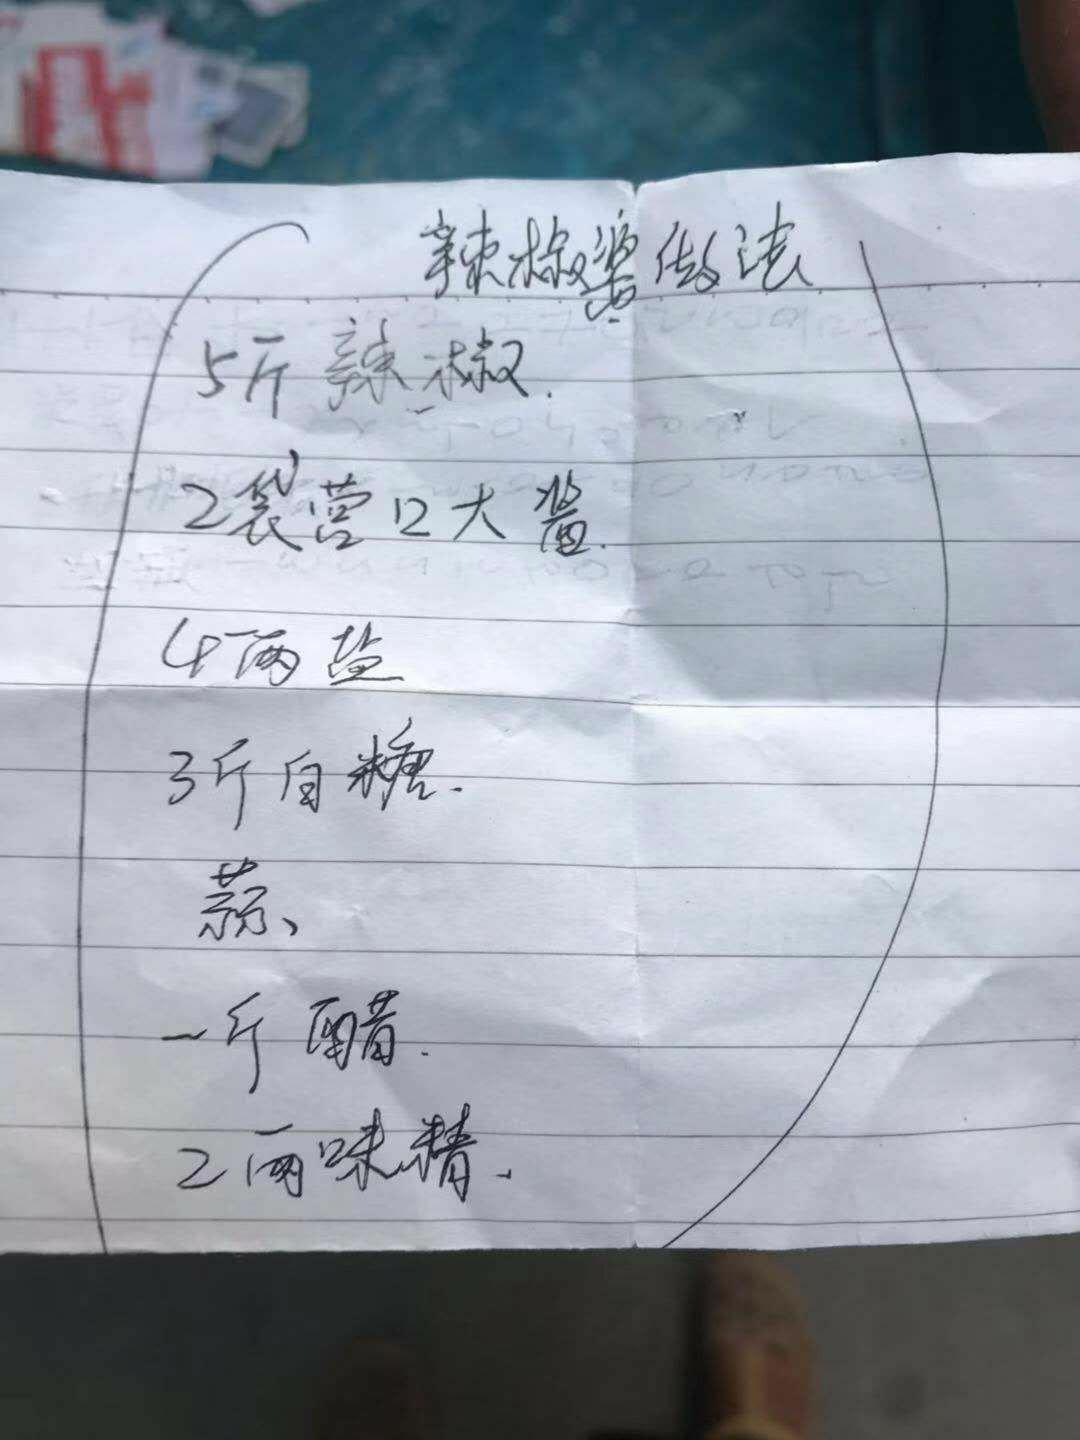 辣椒酱做法
5斤辣椒.
2袋营口大酱.
4两盐
3斤白糖.
蒜、
一斤醋.
2两味精.